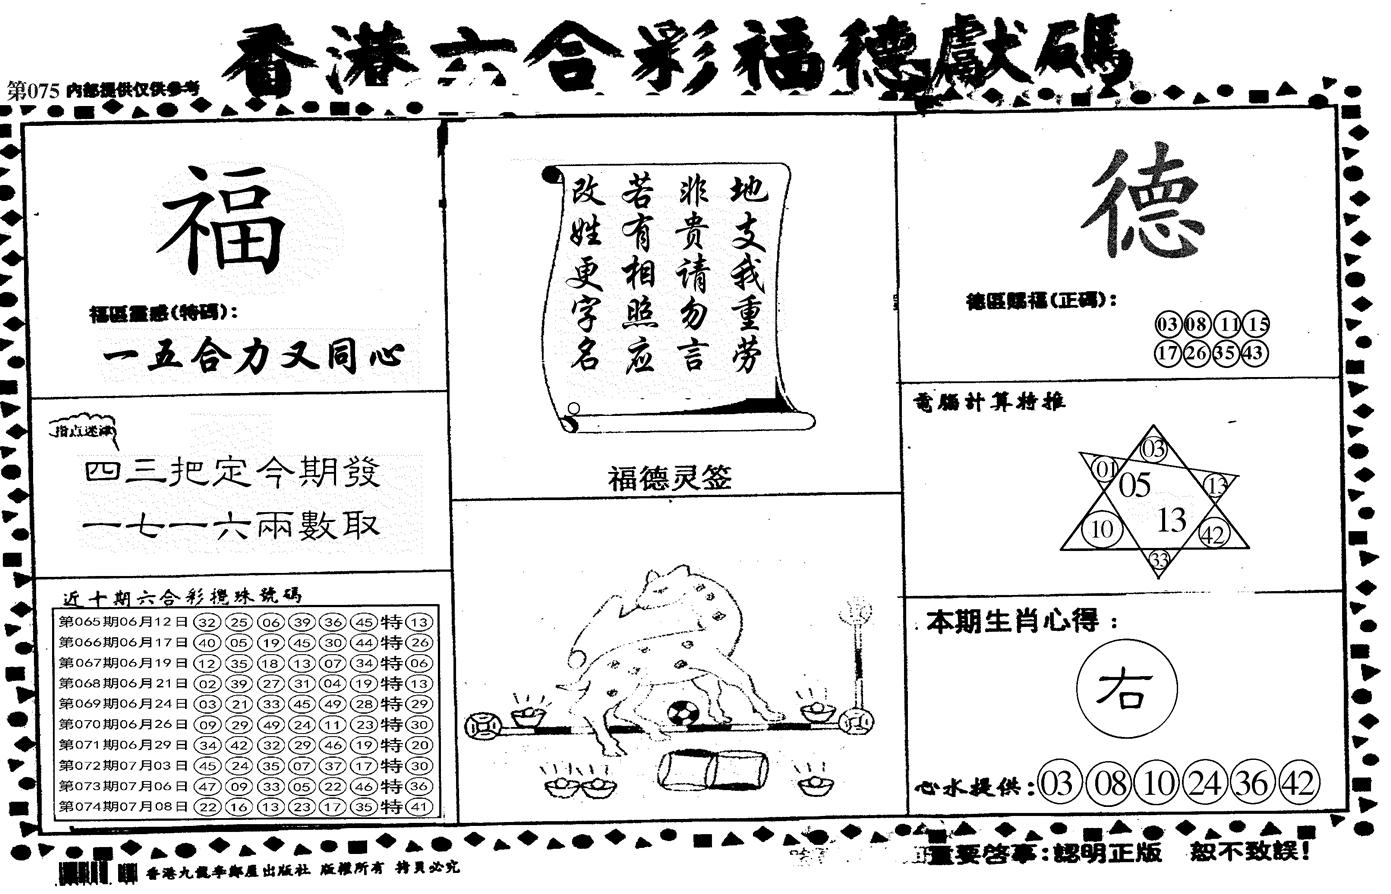 香港六合彩福德獻碼
第075 内部提供仅供参考
福
福區靈感(特碼):
一五合力又同心
指点迷津
四三把定今期發
一七一六兩數取
近十期六合彩攪珠號碼
第065期06月12日 32 25 06 39 36 45 特 13
第066期06月17日 40 05 19 45 30 44 特 26
第067期06月19日 12 35 18 13 07 34 特 06
第068期06月21日 02 39 27 31 04 19 特 13
第069期06月24日 03 21 33 45 49 28 特 29
第070期06月26日 09 29 49 24 11 23 特 30
第071期06月29日 34 42 32 29 46 19 特 20
第072期07月03日 45 24 35 07 37 17 特 30
第073期07月06日 47 09 33 05 22 46 特 36
第074期07月08日 22 16 13 23 17 35 特 41
地支我重劳
非贵请勿言
若有相照应
改姓更字名
福德灵签
德
德區賜福(正碼):
03 08 11 15
17 26 35 43
電腦計算特推
03
01
05
13
13
10
42
33
本期生肖心得:
右
心水提供:03 08 10 24 36 42
重要啓事:認明正版 恕不致誤!
版權所有 拷貝必究